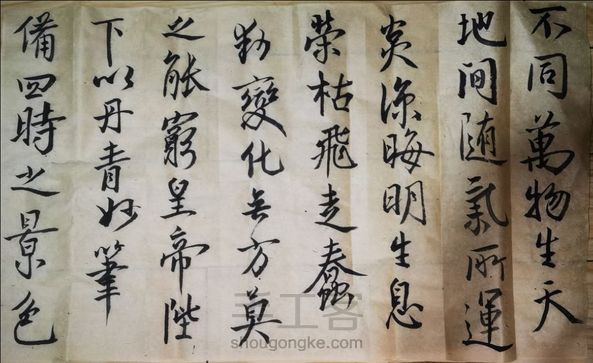 不同萬物生天
地间随氣所運
炎涼晦明生息
荣枯飛走蠢
動變化无方莫
之能窮皇帝陛
下以丹青妙筆
備四時之景色
手工客
shougongke.com